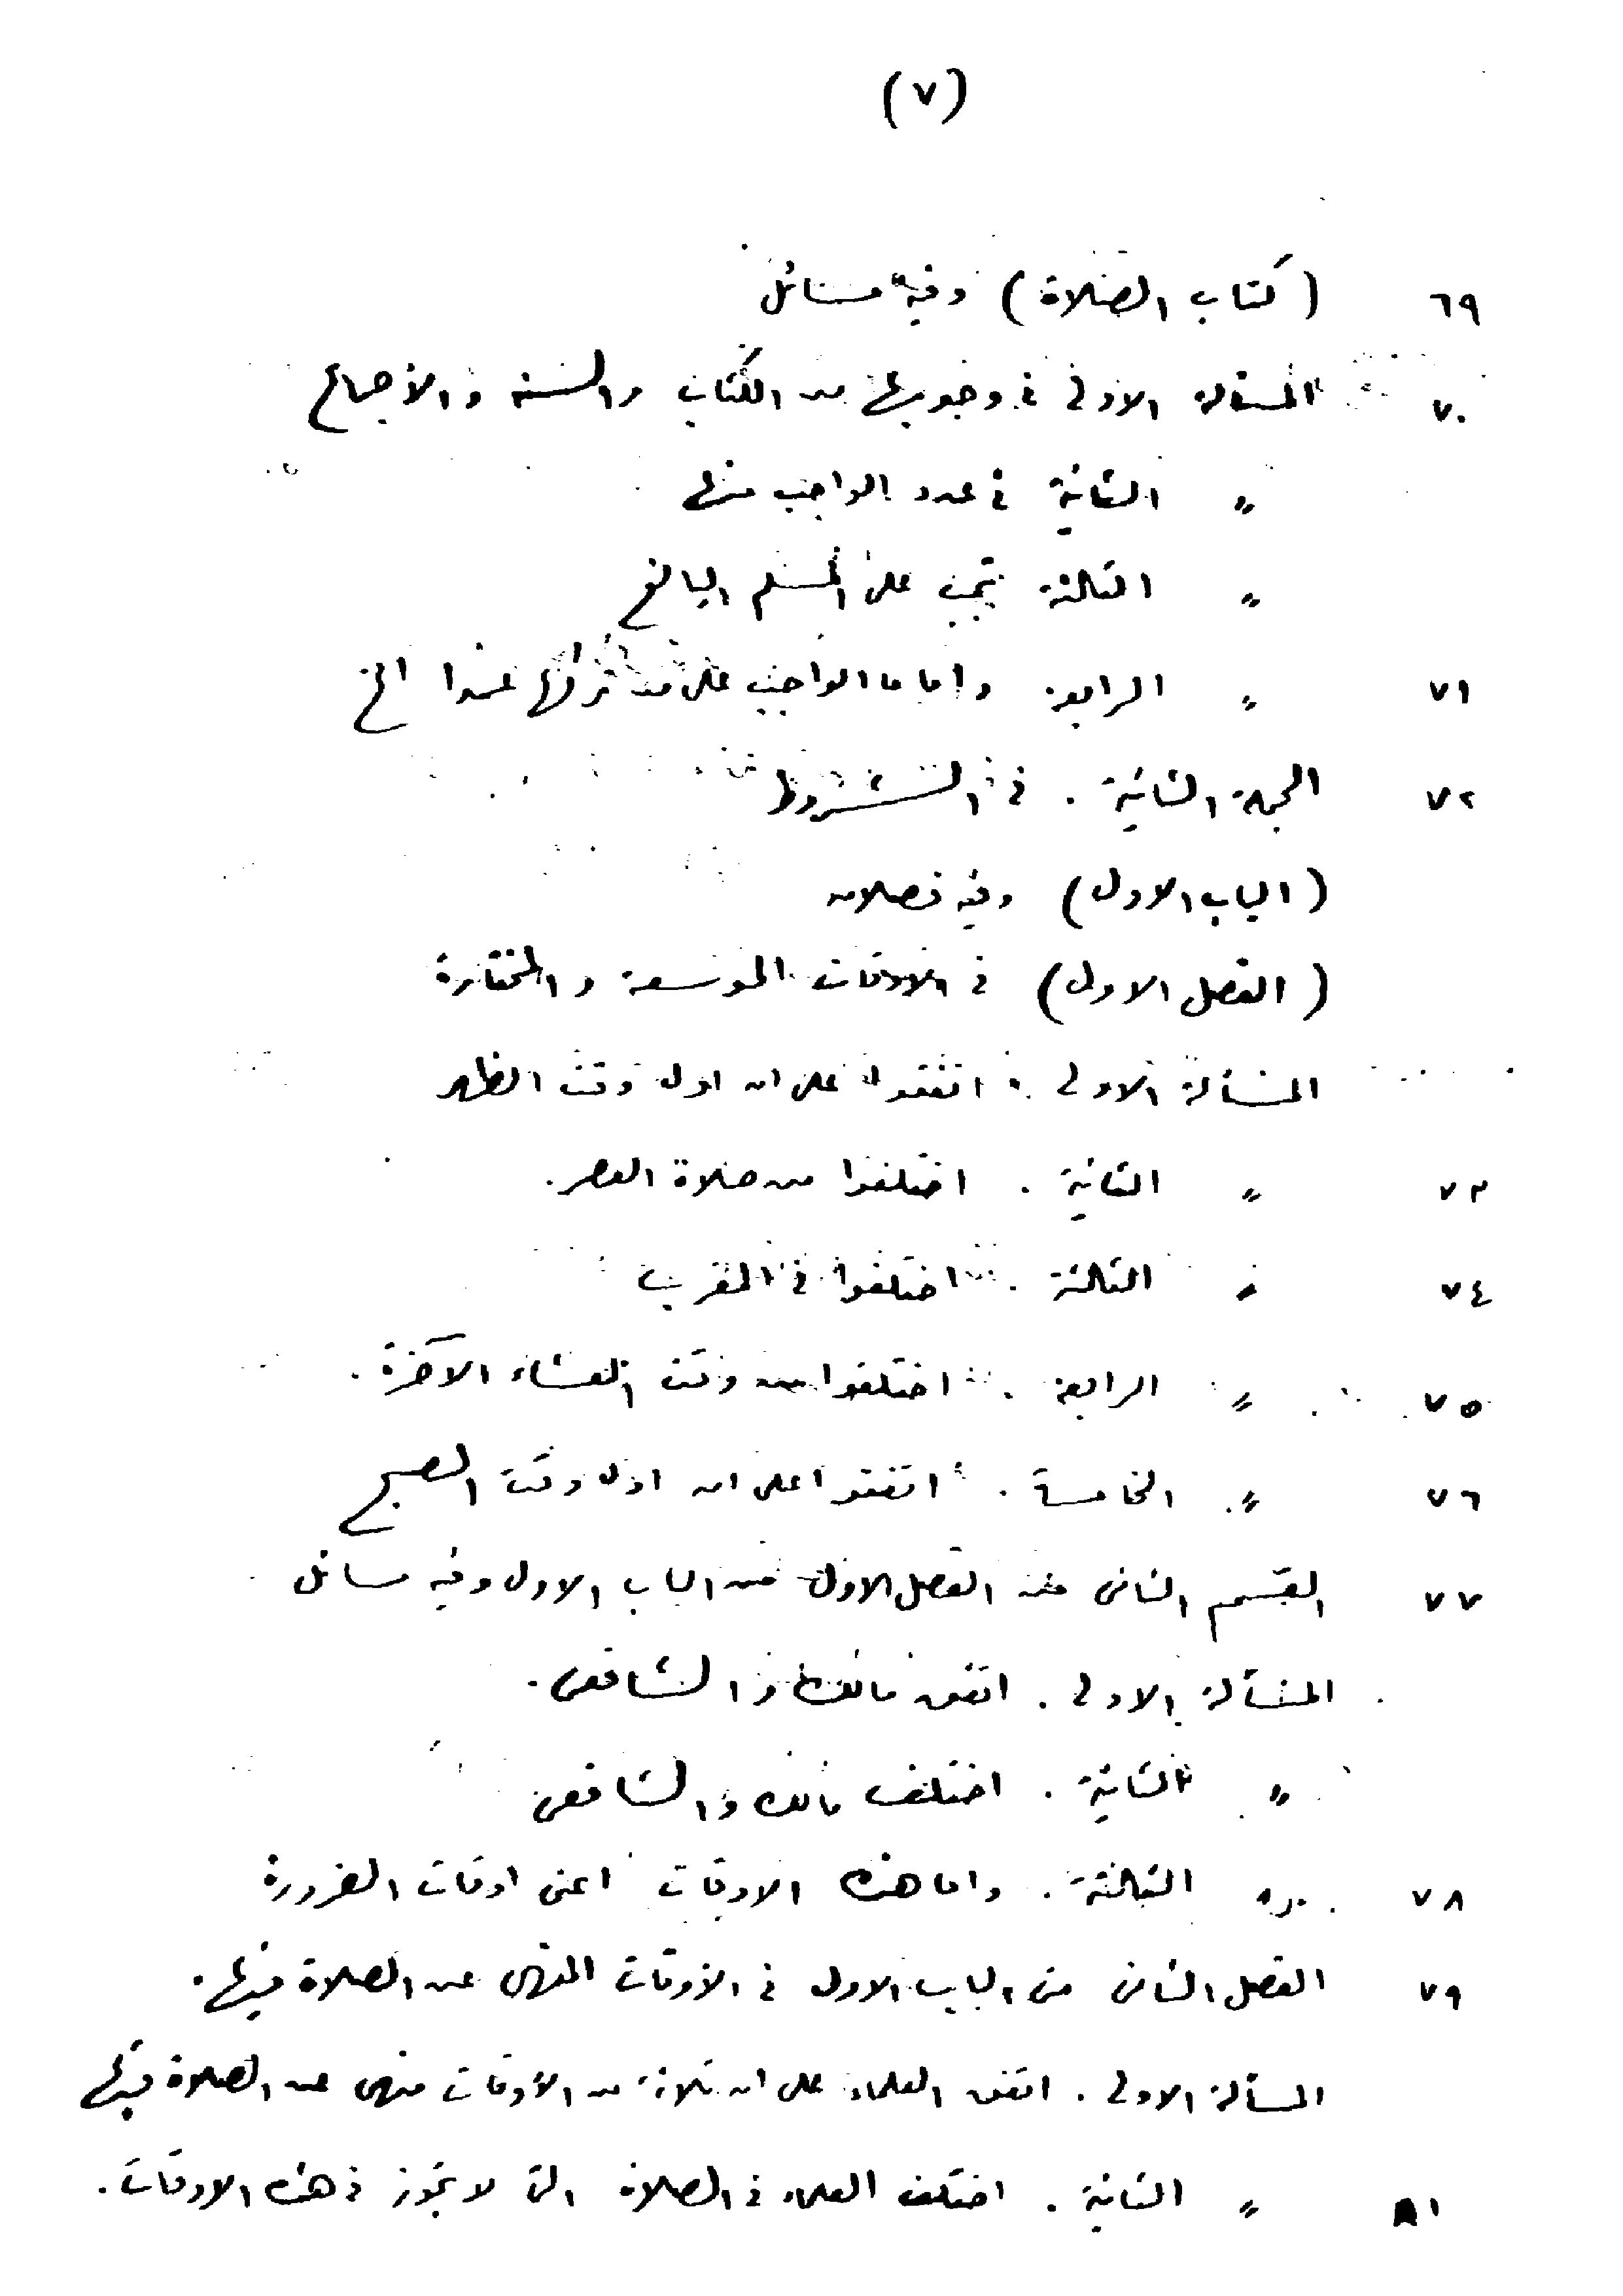 (٧)
٦٩ (كتاب الصلاة) وفيه مسائل
٧٠ المسألة الاولى في وجوبها من الكتاب والسنة والأجماع
〃 الثانية في عدد الواجب منها
〃 الثالثة تجب على المسلم البالغ
٧١ 〃 الرابعة واما ما الواجب على من تركها عمدا الخ
٧٢ الجملة الثانية . في الشروط
(الباب الاول) وفيه فصلان
(الفصل الاول) في الاوقات الموسعة والمختارة
المسألة الاولى . اتفقوا على ان اول وقت الظهر
٧٣ 〃 الثانية . اختلفوا من صلاة العصر.
٧٤ 〃 الثالثة . اختلفوا في المغرب
٧٥ 〃 الرابعة . اختلفوا من وقت العشاء الآخرة .
٧٦ 〃 الخامسة . اتفقوا على ان اول وقت الصبح
٧٧ القسم الثانى من الفصل الاول من الباب الاول وفيه مسائل
المسألة الاولى . اتفق مالك والشافعى .
〃 الثانية . اختلف مالك والشافعى
٧٨ 〃 الثالثة . واما هذه الاوقات اعنى اوقات الضرورة
٧٩ الفصل الثانى من الباب الاول في الأوقات المنهى عن الصلاة فيها .
المسألة الاولى . اتفق العلماء على ان ثلاثة من الأوقات منهى عن الصلاة فيها
٨١ 〃 الثانية . اختلف العلماء في الصلاة التى لا تجوز في هذه الاوقات .